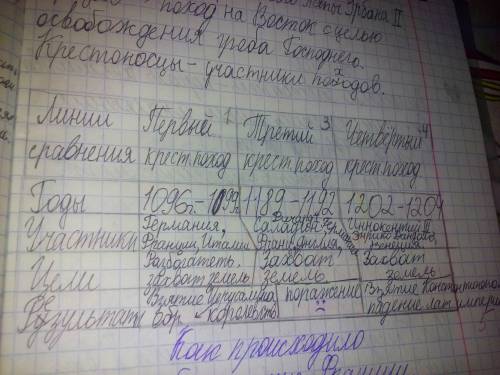 Папы Урбана II
поход на Восток с целью
освобождения гроба Господнего.
Крестоносцы - участники походов.
Линии сравнения Первый 1 крест.поход Третий 3 крест.поход Четвёртый 4 крест.поход
Годы 1096г.-1099г. 1189-1192 1202-1204
Участники Германия, Франция, Италия Саладин, Германия Франц., Англия, Иннокентий III Энрико Дандоло, Венеция
Цели Разбогатеть. захват земель Захват земель Захват земель
Результаты Взятие Иерусалима королевств поражение Взятие Константинополя падение лат. империи
Как происходило